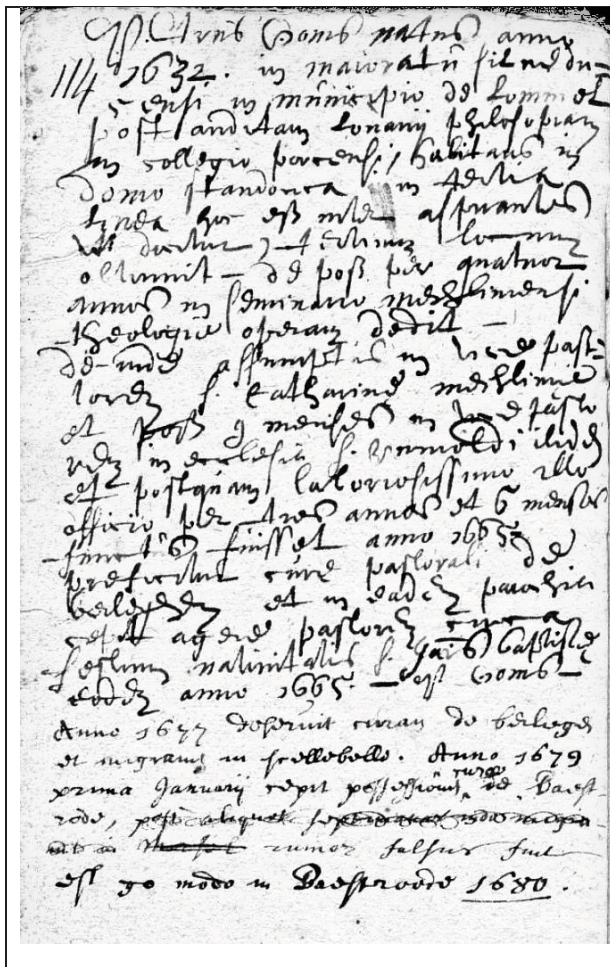 P. Petrus Goms natus anno
114 1632. in maioratu silvædu-
censi in municipio de Lommel
post auditam Lovanii philosophiam
in collegio porcensi, habitans in
domo standonica in tertia
linea hoc est inter aspirantes
ut dicitur, tertium locum
obtinuit - de post per quatuor
annos in seminario mechliniensi
theologie operam dedit -
de-inde assumptus in vice past-
torem s. Catharine mechlinie
et post 9 menses in vice pasto
rem in ecclesia s. Rumoldi ibidem
et postquam laboriosissimo illo
officio per tres annos et 6 menses
functus fuisset anno 1665
preficitur cure pastorali de
berleghem et in eadem parochia
cepit agere pastorem circa
festum nativitatis s. Joãis baptiste
eodem anno 1665. - est Goms -
Anno 1677 deseruit curam de berlegem
et migravit in scellebelle. Anno 1679
prima Januarij cepit possessionem curæ de Baest-
rode, post aliquot
rumor falsus fuit
est go modo in Baestroede 1680.